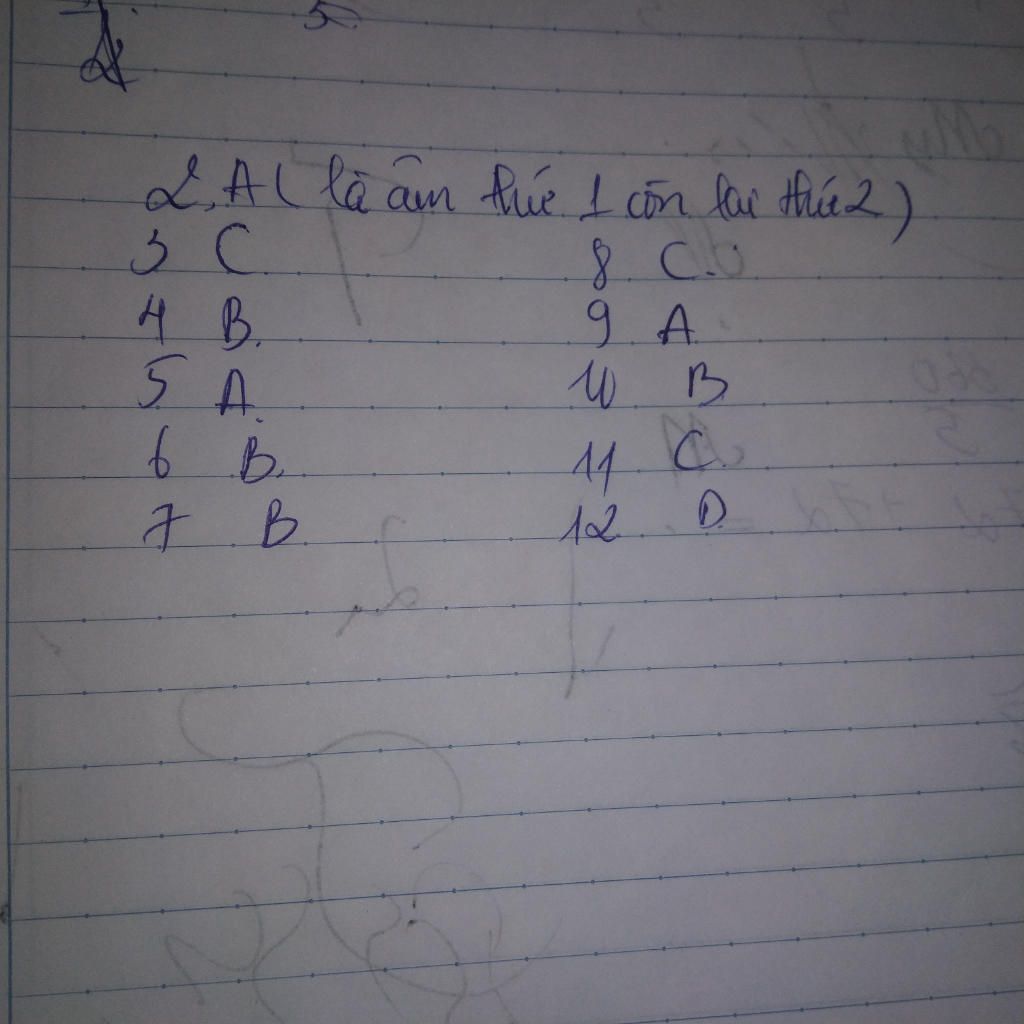 5
2, A ( là âm thứ 1 còn lại thứ 2 )
3 C. 8 C.
4 B. 9 A
5 A. 10 B
6 B. 11 C.
7 B 12 D.